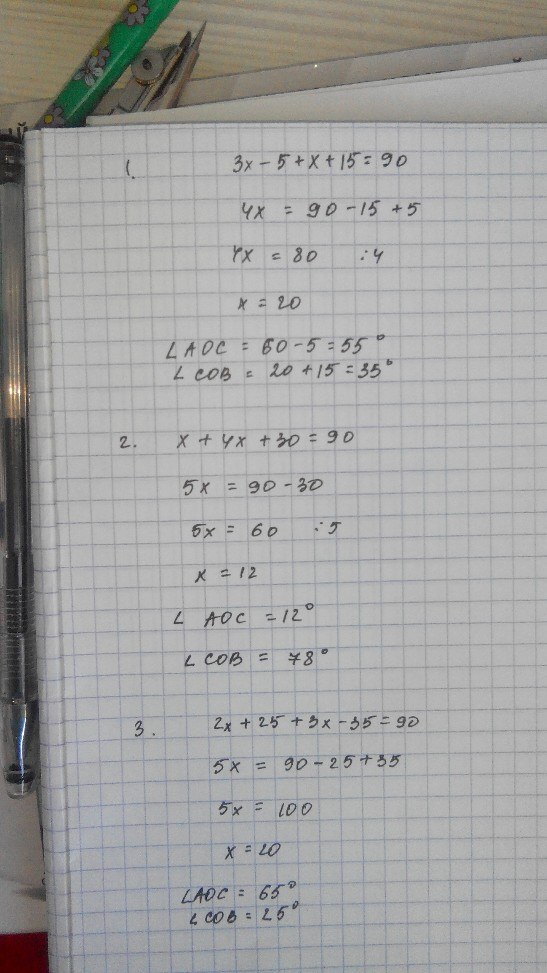 1. 3x - 5 + x + 15 = 90
4x = 90 - 15 + 5
4x = 80 :4
x = 20
∠AOC = 60 - 5 = 55°
∠COB = 20 + 15 = 35°
2. x + 4x + 30 = 90
5x = 90 - 30
5x = 60 :5
x = 12
∠ AOC = 12°
∠ COB = 78°
3. 2x + 25 + 3x - 35 = 90
5x = 90 - 25 + 35
5x = 100
x = 20
∠AOC = 65°
∠COB = 25°